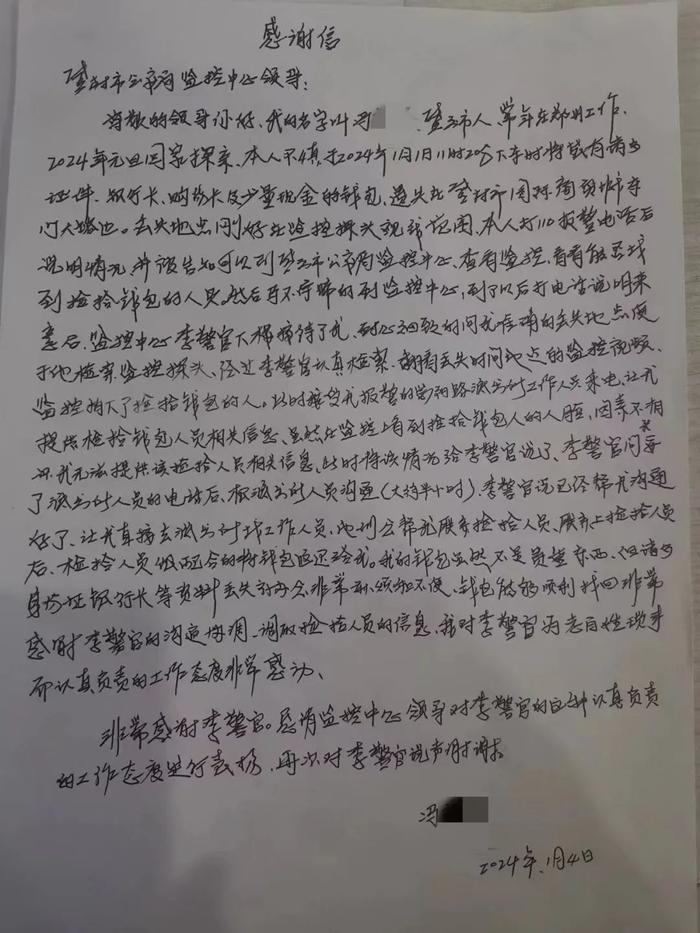 感谢信
登封市公安局监控中心领导：
尊敬的领导你好，我的名字叫冯 登封市人 常年在郑州工作，
2024年元旦回家探亲，本人不慎于2024年1月1日11时20分下车时将装有诸多
证件、银行卡、购物卡及少量现金的钱包，遗失在登封市园林商
门口路边。丢失地点刚好在监控探头视线范围，本人打110报警电话后
说明情况，并被告知可以到登封市公安局监控中心，查看监控，看看能否找
到捡拾钱包的人员。然后马不停蹄的到监控中心，到了以后打电话说明来
意后，监控中心李警官下楼接待了我，耐心细致的问我准确的丢失地点便
于他检索监控探头，经过李警官认真检索，翻看丢失时间地点的监控视频，
监控拍下了捡拾钱包的人。此时接受我报警的派出所工作人员来电，让我
提供捡拾钱包人员相关信息，虽然在监控上看到捡拾钱包人的人脸，因素不相
识我无法提供该捡拾人员相关信息，此时将该情况给李警官说了，李警官问要
了派出所人员的电话后，和派出所人员沟通（大约半小时），李警官说已经帮我沟通
好了，让我直接去派出所找工作人员，他们会帮我联系捡拾人员，联系上捡拾人员
后，捡拾人员很配合的将钱包返还给我。我的钱包虽然不是贵重东西，但诸多
身份证银行卡等资料丢失补办会非常麻烦和不便，钱包能够顺利找回非常
感谢李警官的沟通协调，调取捡拾人员的信息，我对李警官为老百姓办事
而认真负责的工作态度非常感动、
非常感谢李警官。恳请监控中心领导对李警官的这种认真负责
的工作态度进行表扬，再次对李警官说声谢谢
冯
2024年1月4日